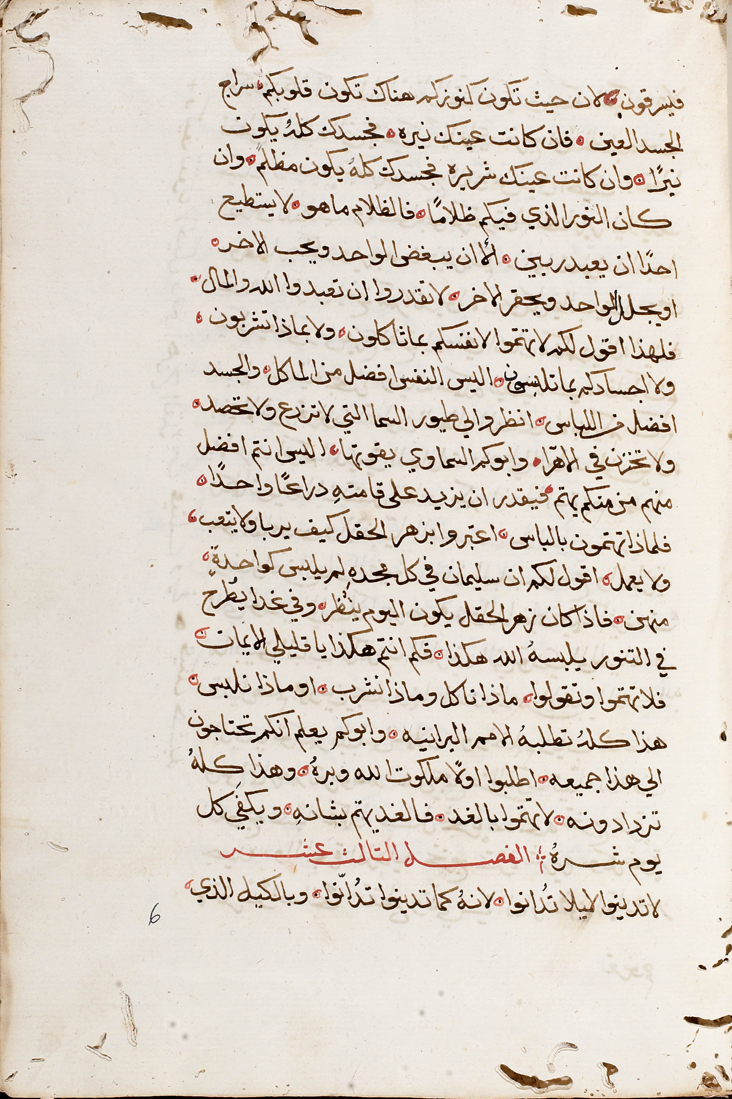 فيسرقون، لان حيث تكون كنوزكم هناك تكون قلوبكم، سراج
الجسد العين، فان كانت عينك نيره، فجسدك كلهُ يكون
نيرًا، وان كانت عينك شريره فجسدك كلهُ يكون مظلم، وان
كان النور الذي فيكم ظلامًا، فالظلام ماهو، لا يستطيع
احدًا ان يعبد ربين، الّا ان يبغض الواحد ويحب الاخر،
او يجلل الواحد ويحقر الاخر، لا تقدروا ان تعبدوا الله والمال،
فلهذا اقول لكم لا تهتموا لانفسكم بماذا تاكلون، ولا بماذا تشربون،
ولا اجسادكم بما تلبسون، اليس النفس افضل من الماكل، والجسد
افضل من اللباس، انظروا الي طيور السما التي لا تزرع ولا تحصد،
ولا تخزن في الاهرا، وابوكم السماوي يقوتها، اليس انتم افضل
منهم من منكم يهتم فيقدر ان يزيد على قامتهِ دراعًا واحدًا،
فلماذا تهتمون بالباس، اعتبروا بزهر الحقل كيف يربا ولا يتعب،
ولا يعمل، اقول لكم ان سليمان في كل مجده لم يلبس كواحدةٍ
منهن، فاذا كان زهر الحقل يكون اليوم ينظر، وفي غدا يُطرح
في التنور يلبسهُ الله هكذا، فكم انتم هكذا يا قليلي الايمان،
فلا تهتموا وتقولوا، ماذا ناكل وماذا نشرب، او ماذا نلبس،
هذا كلهُ تطلبهُ الامم البرانيه، وابوكم يعلم انكم تحتاجون
الي هذا جميعه، اطلبوا اولًا ملكوت الله وبرهُ، وهذا كلهُ
تزدادونه، لا تهتموا بالغد، فالغد يهتم بشانهِ، ويكفي كل
يوم شرهُ الفصل التالت عشر
لا تدينوا ليلا تُدانوا، لانهُ كما تدينوا تُدانوا، وبالكيل الذي،
6